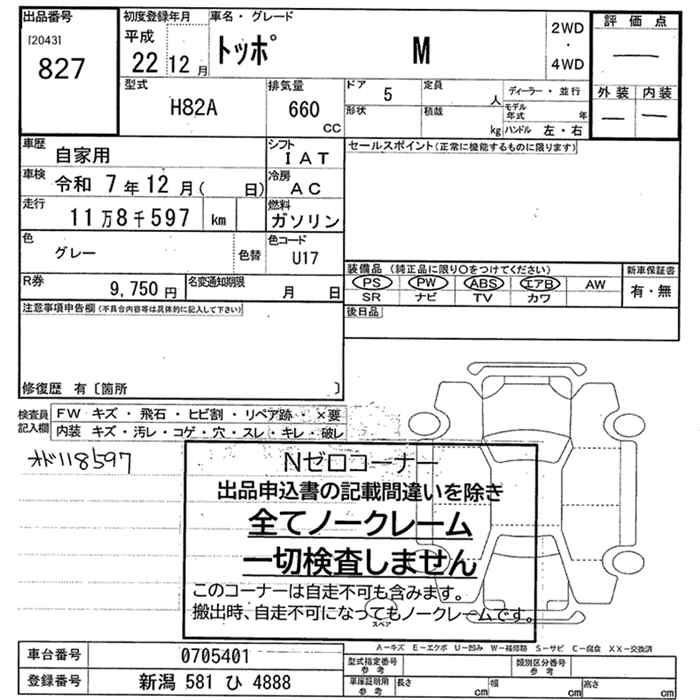 出品番号
[2043]
827
初度登録年月
平成
22 12 月
車名・グレード
トッポ M
2WD
・
4WD
評価点
―
外装 内装
― ―
型式
H82A
排気量
660
CC
ドア 5
形状
定員 人
積載 kg
ディーラー・並行
モデル年式 年
ハンドル 左・右
車歴
自家用
シフト
IAT
セールスポイント(正常に機能するものに限ります)
車検 令和 7年12月( 日)
冷房
AC
走行
11万8千597 km
燃料
ガソリン
色
グレー
色替
色コード
U17
R券
9,750 円
名変通知期限
月 日
装備品 (純正品に限り○をつけてください)
PS PW ABS エアB AW
SR ナビ TV カワ
新車保証書
有・無
後日品
注意事項申告欄(不具合内容等は具体的に記入して下さい)
修復歴 有〔箇所 〕
検査員記入欄
FW キズ・飛石・ヒビ割・リペア跡・×要
内装 キズ・汚レ・コゲ・穴・スレ・キレ・破レ
オド118597
Nゼロコーナー
出品申込書の記載間違いを除き
全てノークレーム
一切検査しません
このコーナーは自走不可も含みます。
搬出時、自走不可になってもノークレームです。
スペア
A-キズ E-エクボ U-凹み W-補修跡 S-サビ C-腐食 XX-交換済
車台番号 0705401
登録番号 新潟 581 ひ 4888
型式指定番号
参考
類別区分番号
参考
車庫証明用
参考
長さ cm
幅 cm
高さ cm